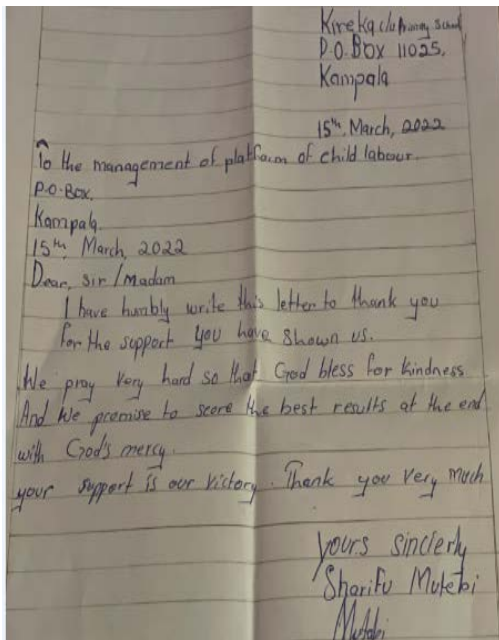 Kireka c/u Primary School
P.O.BOX 11025,
Kampala
15th, March, 2022
To the management of platform of child labour.
P.O-BOX,
Kampala.
15th, March, 2022
Dear, Sir / Madam
I have humbly write this letter to thank you
for the support you have shown us.
We pray very hard so that God bless for kindness
And we promise to score the best results at the end
with God's mercy.
your support is our victory. Thank you very much
yours sinclerly
Sharifu Mutebi
Mutebi